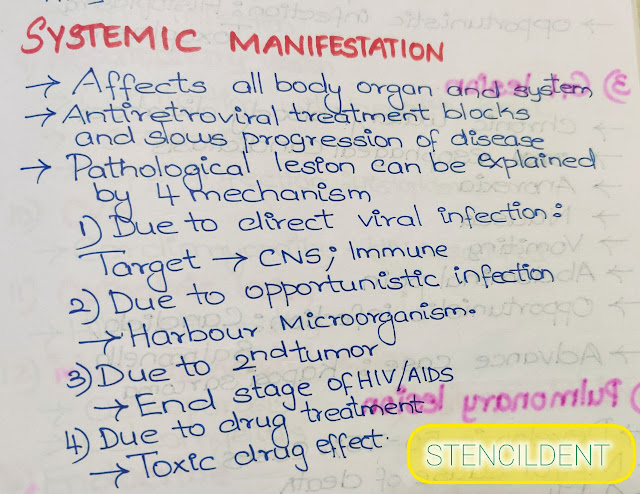 SYSTEMIC MANIFESTATION
→ Affects all body organ and system
→ Antiretroviral treatment blocks
and slows progression of disease
→ Pathological lesion can be explained
by 4 mechanism
1) Due to direct viral infection:
Target → CNS; Immune
2) Due to opportunistic infection
→ Harbour Microorganism.
3) Due to 2nd tumor
→ End stage of HIV/AIDS
4) Due to drug treatment
→ Toxic drug effect.
STENCILDENT